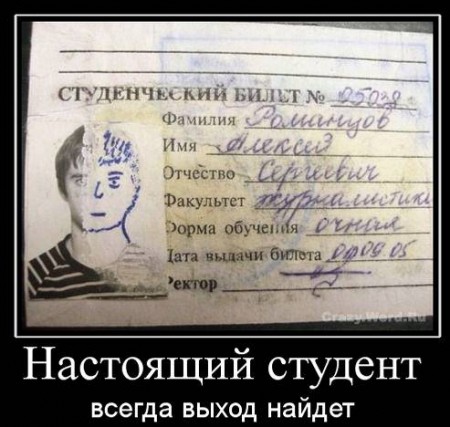 СТУДЕНЧЕСКИЙ БИЛЕТ № 25038
Фамилия Романцов
Имя Алексей
Отчество Сергеевич
Факультет журналистики
Форма обучения очная
Дата выдачи билета 01.09.05
Ректор
CrazyWord.Ru
Настоящий студент
всегда выход найдет